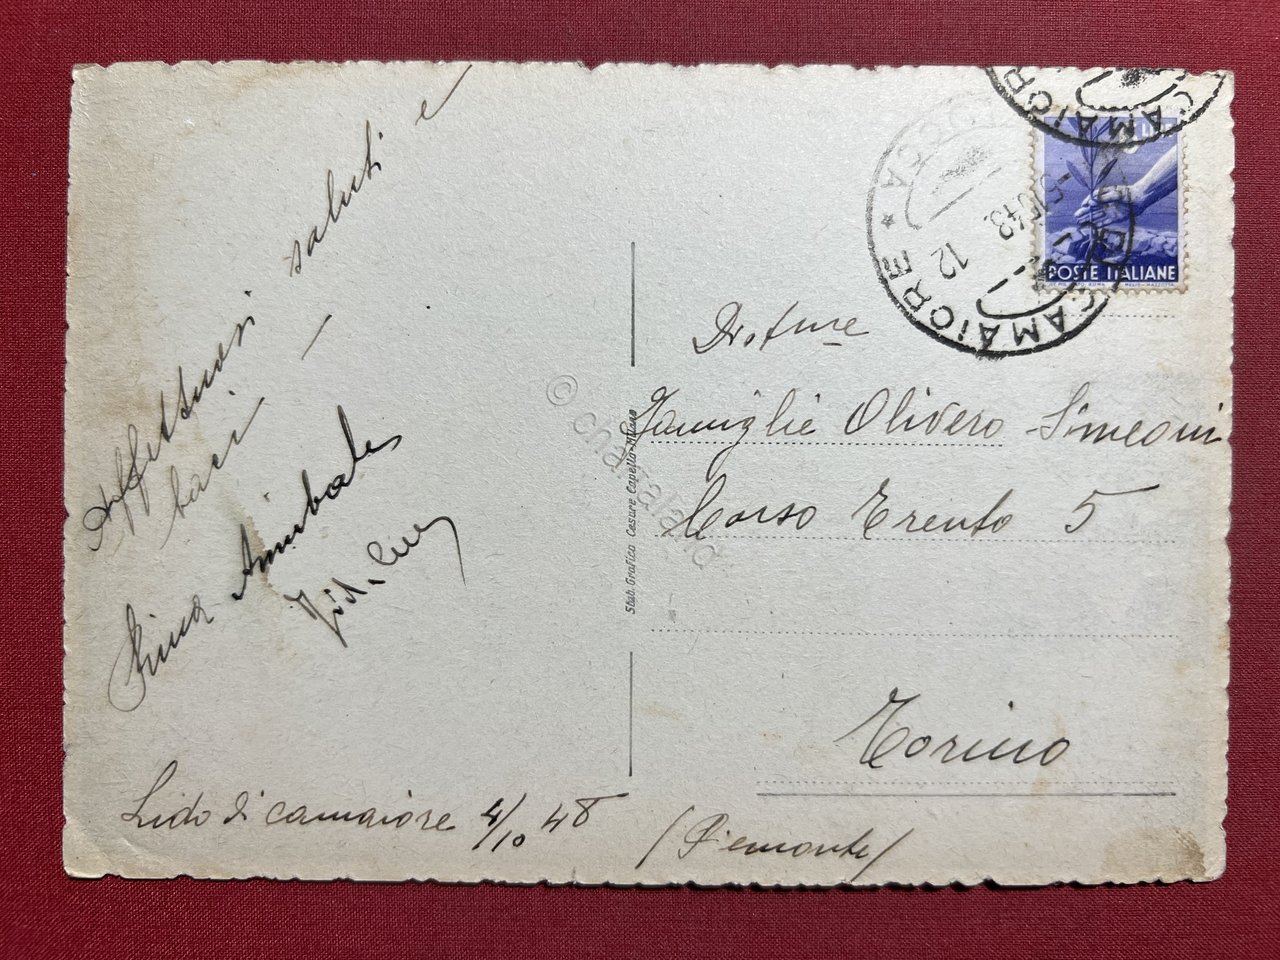 Affettuosi saluti e
baci —
Annibale
Lido di Camaiore 4/10 48
Stab. Grafico Cesare Capello-Milano
LIRE
POSTE ITALIANE
CAMAIORE
LUCCA * CAMAIORE
5.10.48.
12
Famiglie Olivero - Simeoni
Corso Trento 5
Torino
(Piemonte)